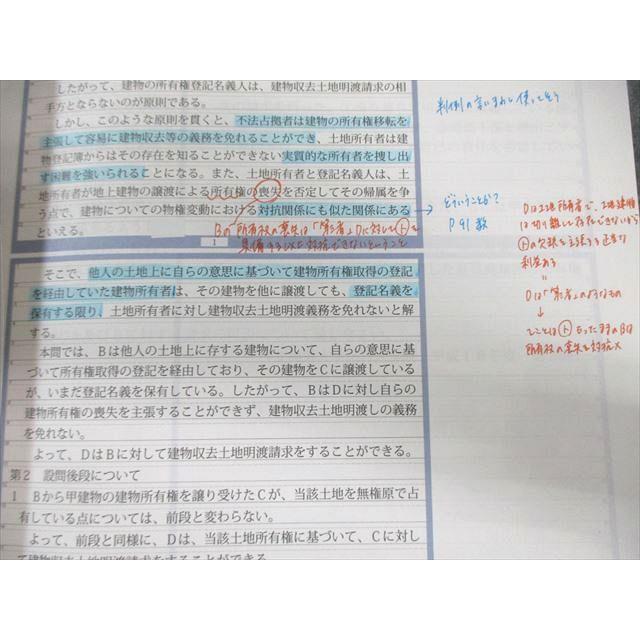 したがって、建物の所有権登記名義人は、建物収去土地明渡請求の相
手方とならないのが原則である。
しかし、このような原則を貫くと、不法占拠者は建物の所有権移転を
主張して容易に建物収去等の義務を免れることができ、土地所有者は建
物登記簿からはその存在を知ることができない実質的な所有者を捜し出
す困難を強いられることになる。また、土地所有者と登記名義人は、土
地所有者が地上建物の譲渡による所有権の喪失を否定してその帰属を争
う点で、建物についての物権変動における対抗関係にも似た関係にある
といえる。
1
そこで、他人の土地上に自らの意思に基づいて建物所有権取得の登記
を経由していた建物所有者は、その建物を他に譲渡しても、登記名義を
保有する限り、土地所有者に対し建物収去土地明渡義務を免れないと解
する。
本問では、Bは他人の土地上に存する建物について、自らの意思に基
づいて所有権取得の登記を経由しており、その建物をCに譲渡している
が、いまだ登記名義を保有している。したがって、BはDに対し自らの
建物所有権の喪失を主張することができず、建物収去土地明渡しの義務
を免れない。
よって、DはBに対して建物収去土地明渡請求をすることができる。
第2 設問後段について
1 Bから甲建物の建物所有権を譲り受けたCが、当該土地を無権原で占
有している点については、前段と変わらない。
よって、前段と同様に、Dは、当該土地所有権に基づいて、Cに対し
て建物収去土地明渡請求をすることができる。
判例の言いまわし使ってそう
どういうことか?
P91 数
Bの「所有权の喪失は「第三者」Dに対して㋣を
Dは土地所有者で、土地建物
は切り離して存在できないから
㋣の欠缺を主張する正当な
利益ある
Dは「第三者」のようなもの
↓
所有权の喪失を対抗×